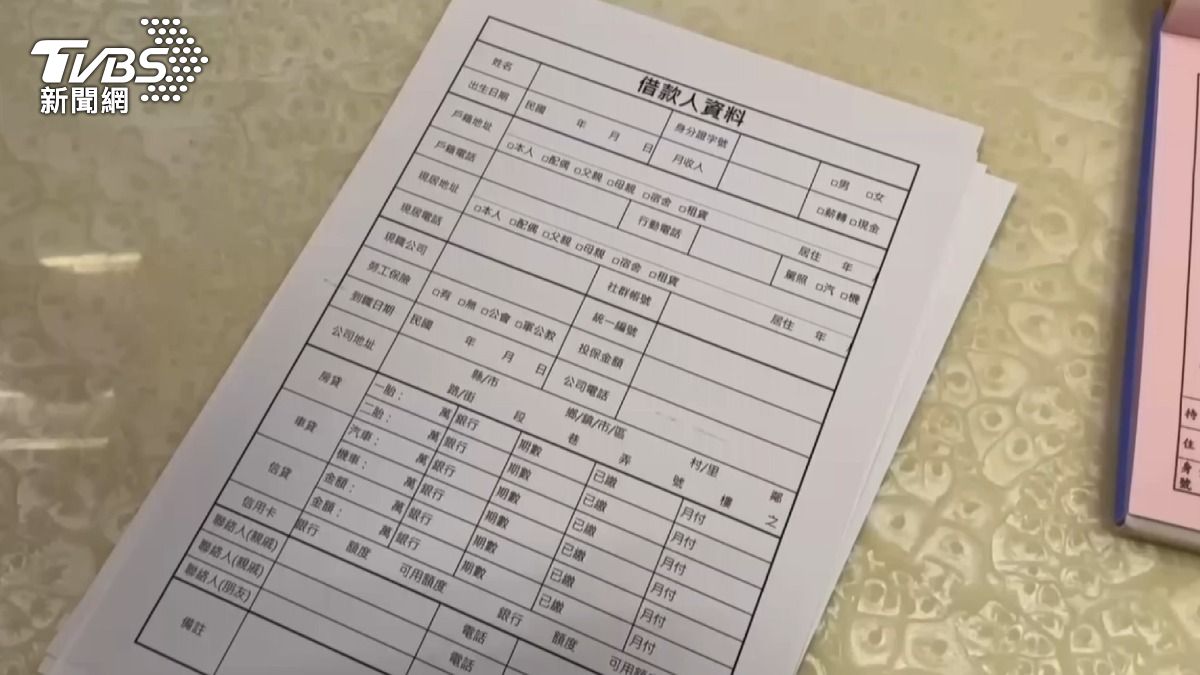 TVBS
新聞網
借款人資料
姓名 身分證字號 □男 □女
出生日期 民國 年 月 日 月收入 □薪轉 □現金
戶籍地址
戶籍電話 □本人 □配偶 □父親 □母親 □宿舍 □租賃 居住 年
現居地址 行動電話 駕照 □汽 □機
現居電話 □本人 □配偶 □父親 □母親 □宿舍 □租賃 居住 年
現職公司 社群帳號
勞工保險 □有 □無 □公會 □軍公教 統一編號
到職日期 民國 年 月 日 投保金額
公司地址 公司電話
縣/市 鄉/鎮/市/區 村/里 鄰
路/街 段 巷 弄 號 樓 之
房貸 一胎： 萬 銀行 期數 已繳 月付
二胎： 萬 銀行 期數 已繳 月付
車貸 汽車： 萬 銀行 期數 已繳 月付
機車： 萬 銀行 期數 已繳 月付
信貸 金額： 萬 銀行 期數 已繳 月付
金額： 萬 銀行 期數 已繳 月付
信用卡 銀行 額度 可用額度 銀行 額度 可用額
聯絡人(親戚) 電話
聯絡人(親戚) 電話
聯絡人(朋友)
備註
持
住
身
號